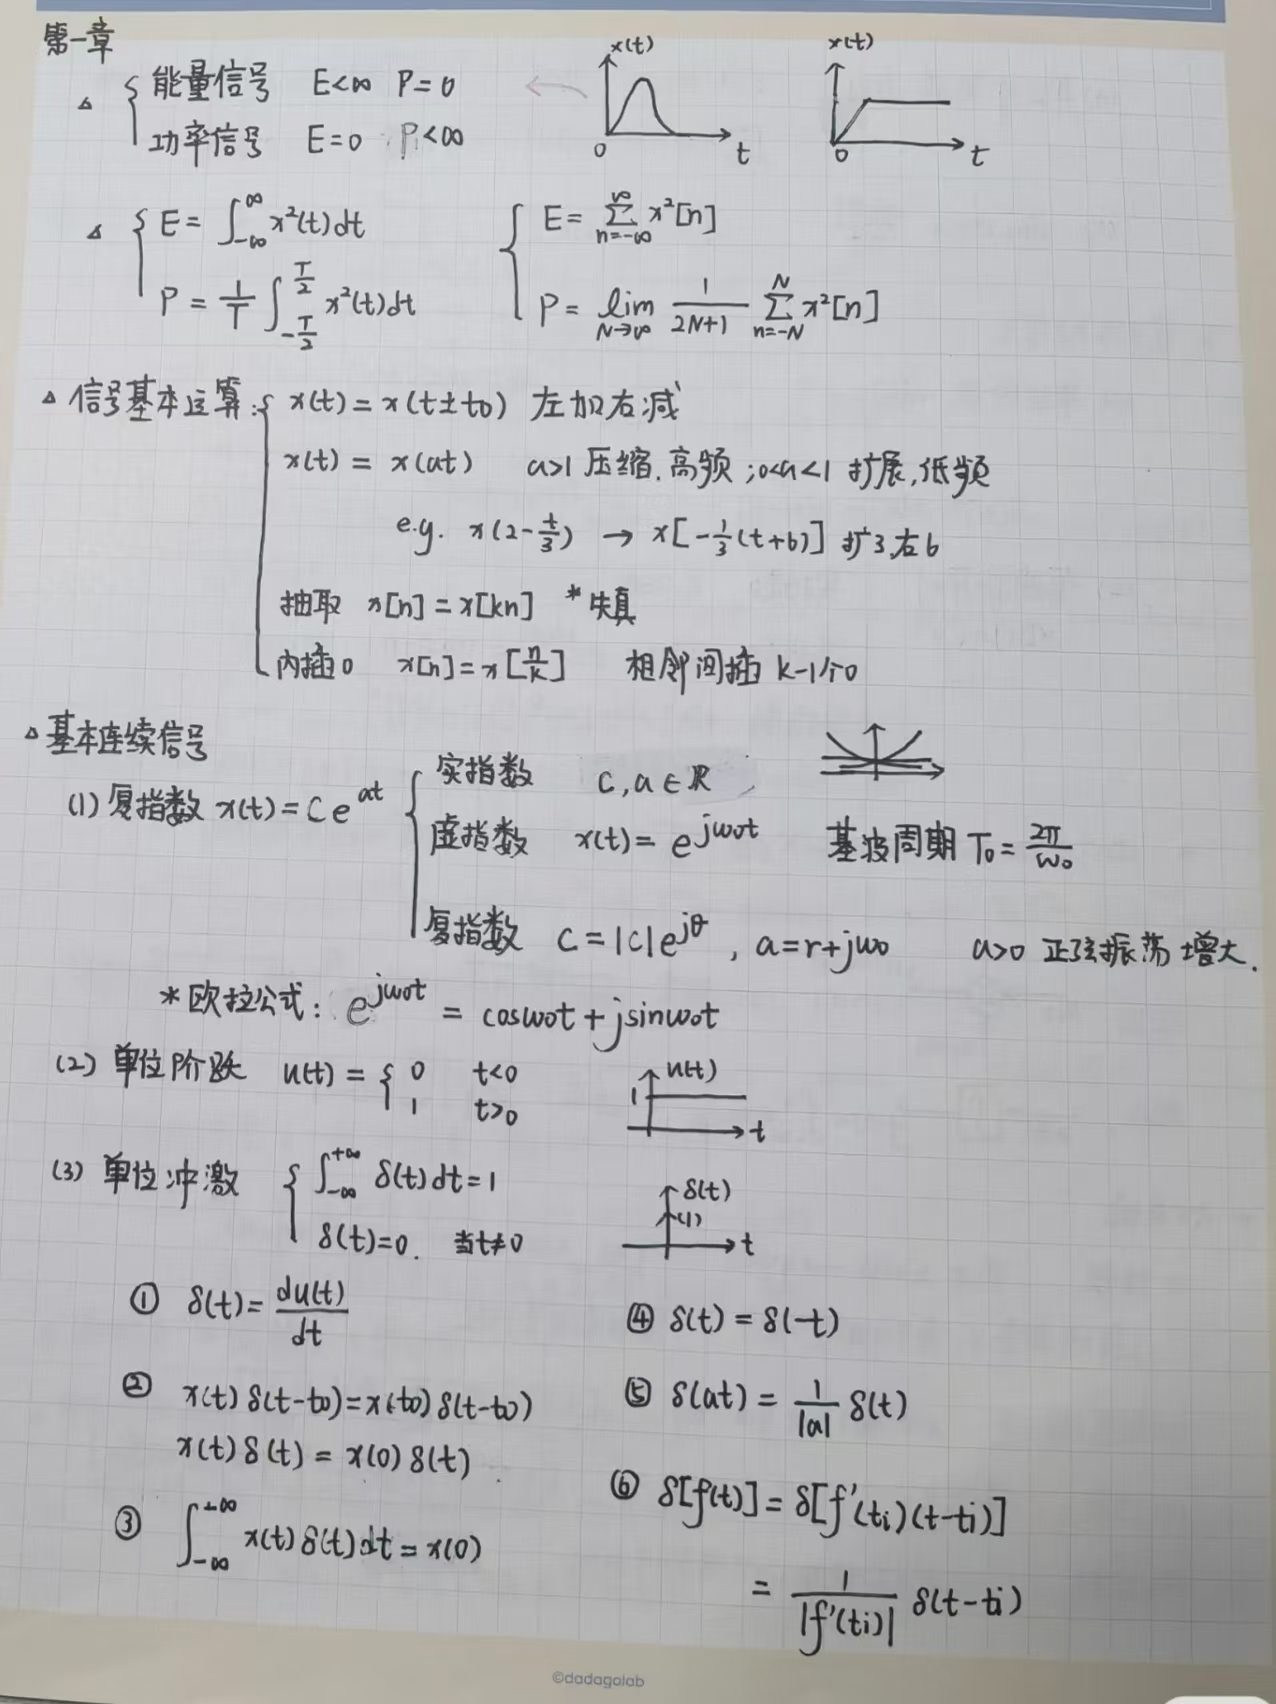 第一章
△ { 能量信号 E<∞ P=0
功率信号 E=0 P<∞
x(t)
0 t
x(t)
0 t
△ { E=∫_{-∞}^{∞} x²(t)dt
P=1/T ∫_{-T/2}^{T/2} x²(t)dt
{ E=∑_{n=-∞}^{∞} x²[n]
P=lim_{N→∞} 1/(2N+1) ∑_{n=-N}^{N} x²[n]
△ 信号基本运算: { x(t)=x(t±t0) 左加右减
x(t)=x(at) a>1 压缩.高频;0<a<1 扩展,低频
e.g. x(2-t/3) → x[-1/3(t+6)] 扩3,右6
抽取 x[n]=x[kn] *失真
内插0 x[n]=x[n/k] 相邻间插 k-1个0
△ 基本连续信号
(1) 复指数 x(t)=Ce^{at} { 实指数 C,a∈R
虚指数 x(t)=e^{jw0t} 基波周期 T0=2π/w0
复指数 C=|C|e^{jθ}, a=r+jw0 a>0 正弦振荡增大.
*欧拉公式: e^{jw0t}=cosw0t+jsinw0t
(2) 单位阶跃 u(t)={ 0 t<0
1 t>0
u(t)
1
t
(3) 单位冲激 { ∫_{-∞}^{+∞} δ(t)dt=1
δ(t)=0. 当t≠0
δ(t)
(1)
t
① δ(t)=du(t)/dt
② x(t)δ(t-t0)=x(t0)δ(t-t0)
x(t)δ(t)=x(0)δ(t)
③ ∫_{-∞}^{+∞} x(t)δ(t)dt=x(0)
④ δ(t)=δ(-t)
⑤ δ(at)=1/|a| δ(t)
⑥ δ[f(t)]=δ[f'(ti)(t-ti)]
=1/|f'(ti)| δ(t-ti)
©dadagolab